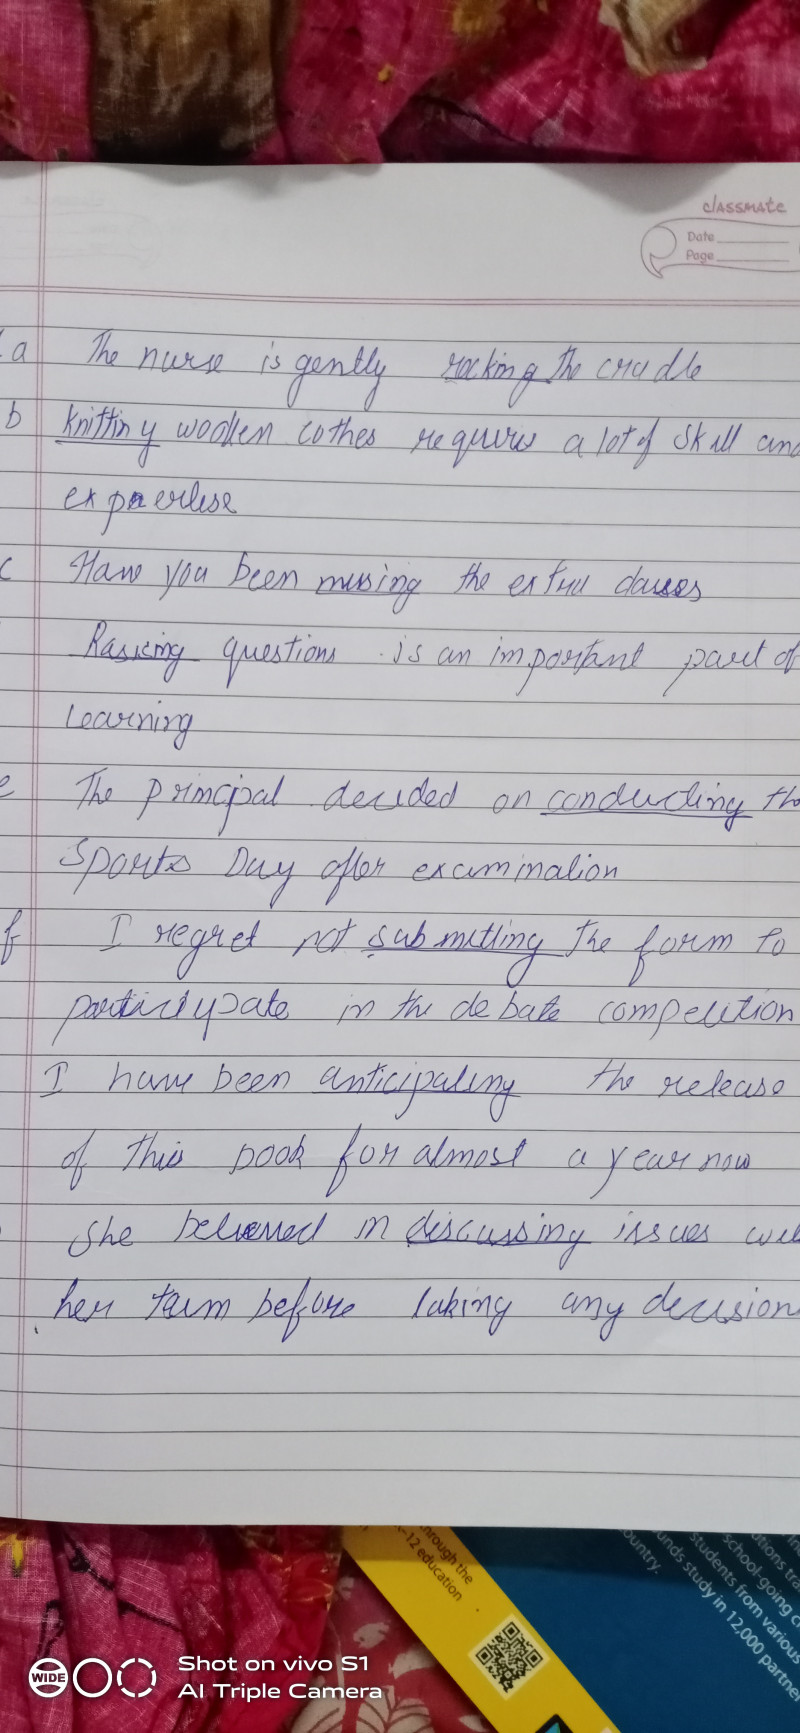 classmate
Date
Page
a The nurse is gently rocking the cradle
b knitting woollen cothes requires a lot of skill and
expaerlise
c Have you been missing the extra classes
Rasking questions is an important part of
learning
e The principal decided on conducting the
Sports Day after examination
f I regret not submitting the form to
participate in the debate competition
I have been anticipating the release
of this book for almost a year now
She believed in discussing issues
her team before taking any decision
through the
-12 education
ountry.
unds study in 12,000 partne
students from various
school-going c
utions tra
WIDE
Shot on vivo S1
AI Triple Camera